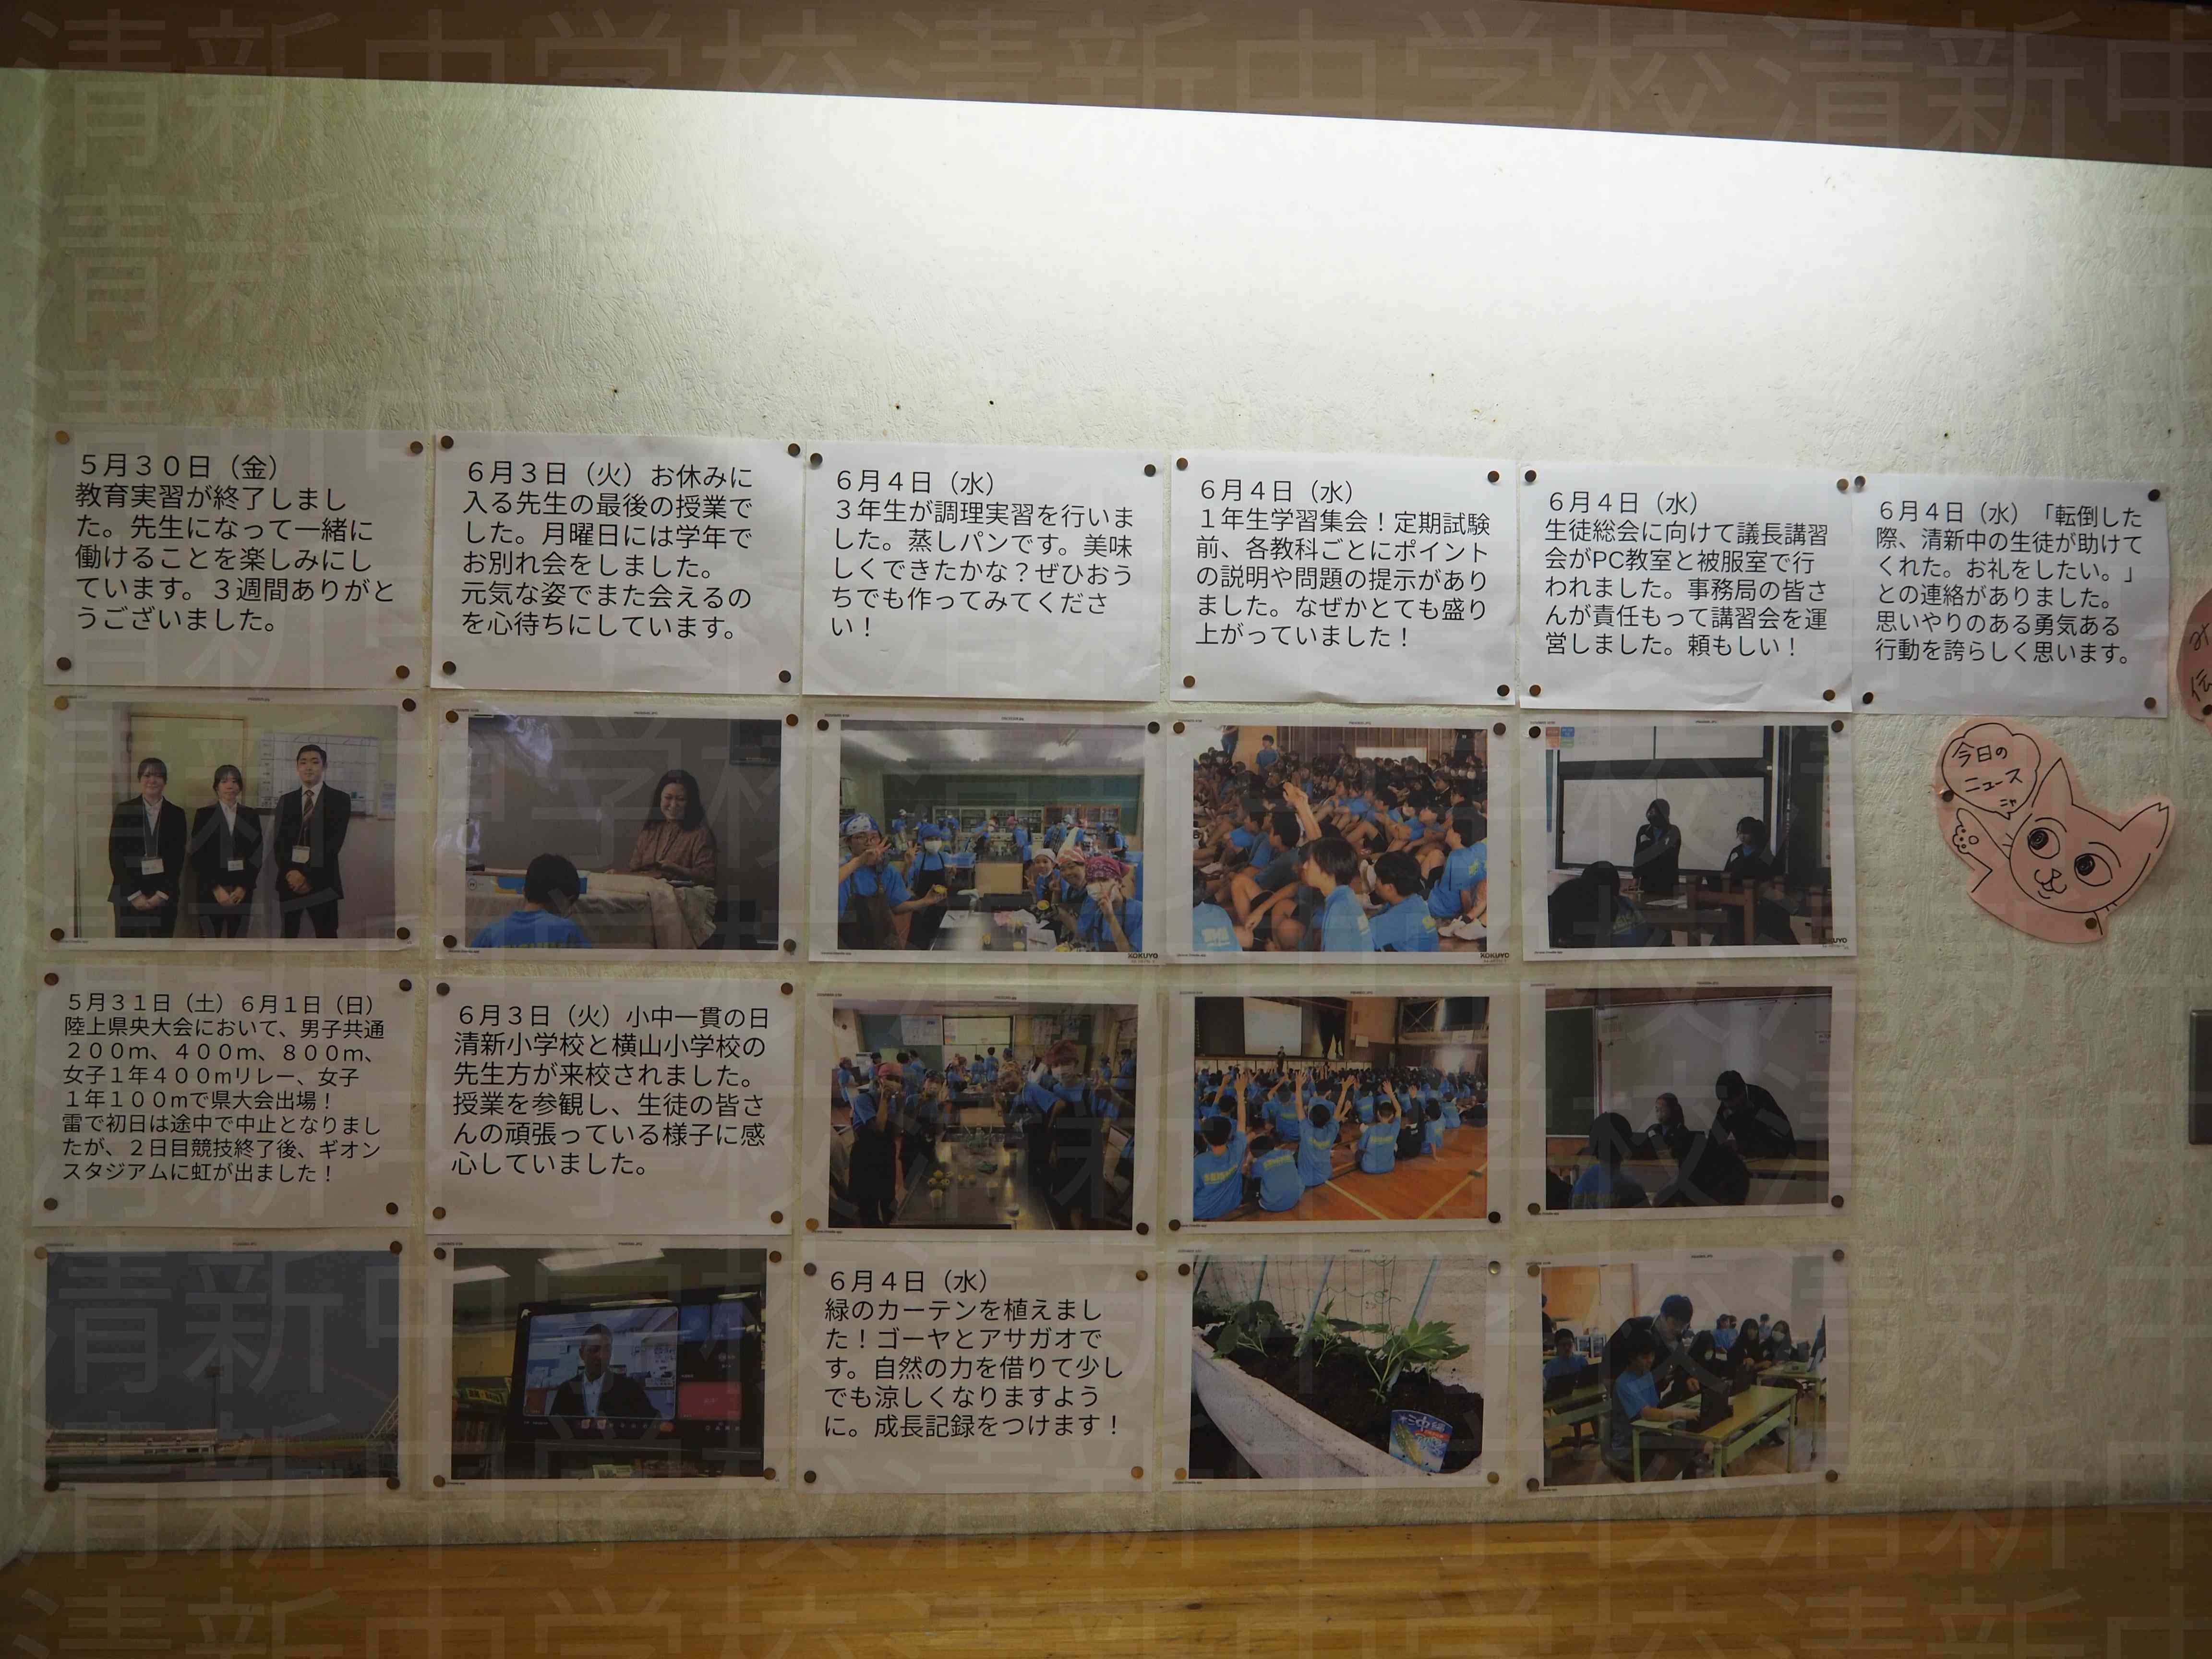 5月30日（金）
教育実習が終了しまし
た。先生になって一緒に
働けることを楽しみにし
ています。3週間ありがと
うございました。
6月3日（火）お休みに
入る先生の最後の授業で
した。月曜日には学年で
お別れ会をしました。
元気な姿でまた会えるの
を心待ちにしています。
6月4日（水）
3年生が調理実習を行いま
した。蒸しパンです。美味
しくできたかな？ぜひおう
ちでも作ってみてくださ
い！
6月4日（水）
1年生学習集会！定期試験
前、各教科ごとにポイント
の説明や問題の提示があり
ました。なぜかとても盛り
上がっていました！
6月4日（水）
生徒総会に向けて議長講習
会がPC教室と被服室で行
われました。事務局の皆さ
んが責任もって講習会を運
営しました。頼もしい！
6月4日（水）「転倒した
際、清新中の生徒が助けて
くれた。お礼をしたい。」
との連絡がありました。
思いやりのある勇気ある
行動を誇らしく思います。
今日の
ニュース
ニャ
KOKUYO
KOKUYO
KOKUYO
5月31日（土）6月1日（日）
陸上県央大会において、男子共通
200m、400m、800m、
女子1年400mリレー、女子
1年100mで県大会出場！
雷で初日は途中で中止となりまし
たが、2日目競技終了後、ギオン
スタジアムに虹が出ました！
6月3日（火）小中一貫の日
清新小学校と横山小学校の
先生方が来校されました。
授業を参観し、生徒の皆さ
んの頑張っている様子に感
心していました。
6月4日（水）
緑のカーテンを植えまし
た！ゴーヤとアサガオで
す。自然の力を借りて少し
でも涼しくなりますよう
に。成長記録をつけます！
清新中学校清新中学校清新中